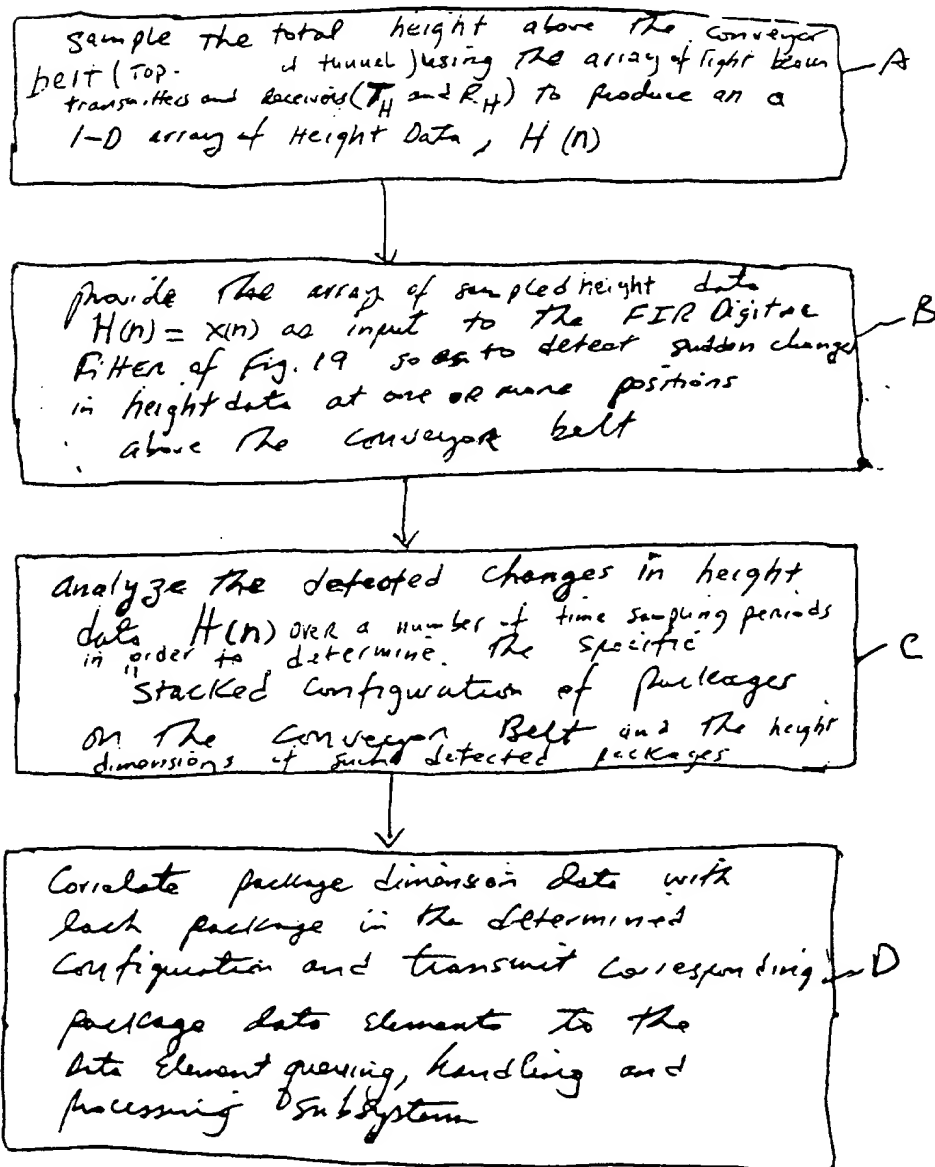 sample the total height above the conveyor
belt (TOP. of tunnel) using the array of light beam
transmitters and Receivers (T_H and R_H) to produce an a
1-D array of Height Data, H(n)
A
provide the array of sampled height data
H(n) = x(n) as input to the FIR Digital
Filter of Fig. 19 so as to detect sudden changes
in height data at one or more positions
above the conveyor belt
B
analyze the detected changes in height
data H(n) over a number of time sampling periods
in order to determine the specific
stacked configuration of packages
on the conveyor Belt and the height
dimensions of such detected packages
C
Correlate package dimension data with
each package in the determined
configuration and transmit corresponding
package data elements to the
Data Element queuing, handling and
processing subsystem
D